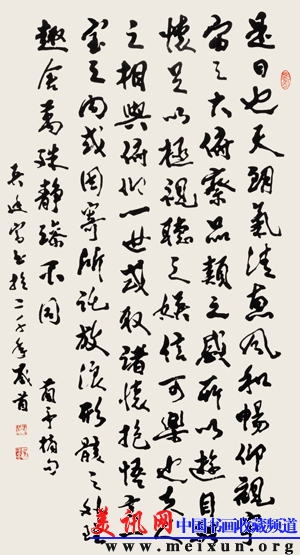 是日也天朗氣清惠風和暢仰觀宇
宙之大俯察品類之盛所以遊目騁
懷足以極視聽之娛信可樂也夫人
之相與俯仰一世或取諸懷抱悟言一
室之內或因寄所託放浪形骸之外雖
趣舍萬殊靜躁不同 蘭亭摘句
年歲首
美讯网
中国书画收藏频道
www.meixun.org